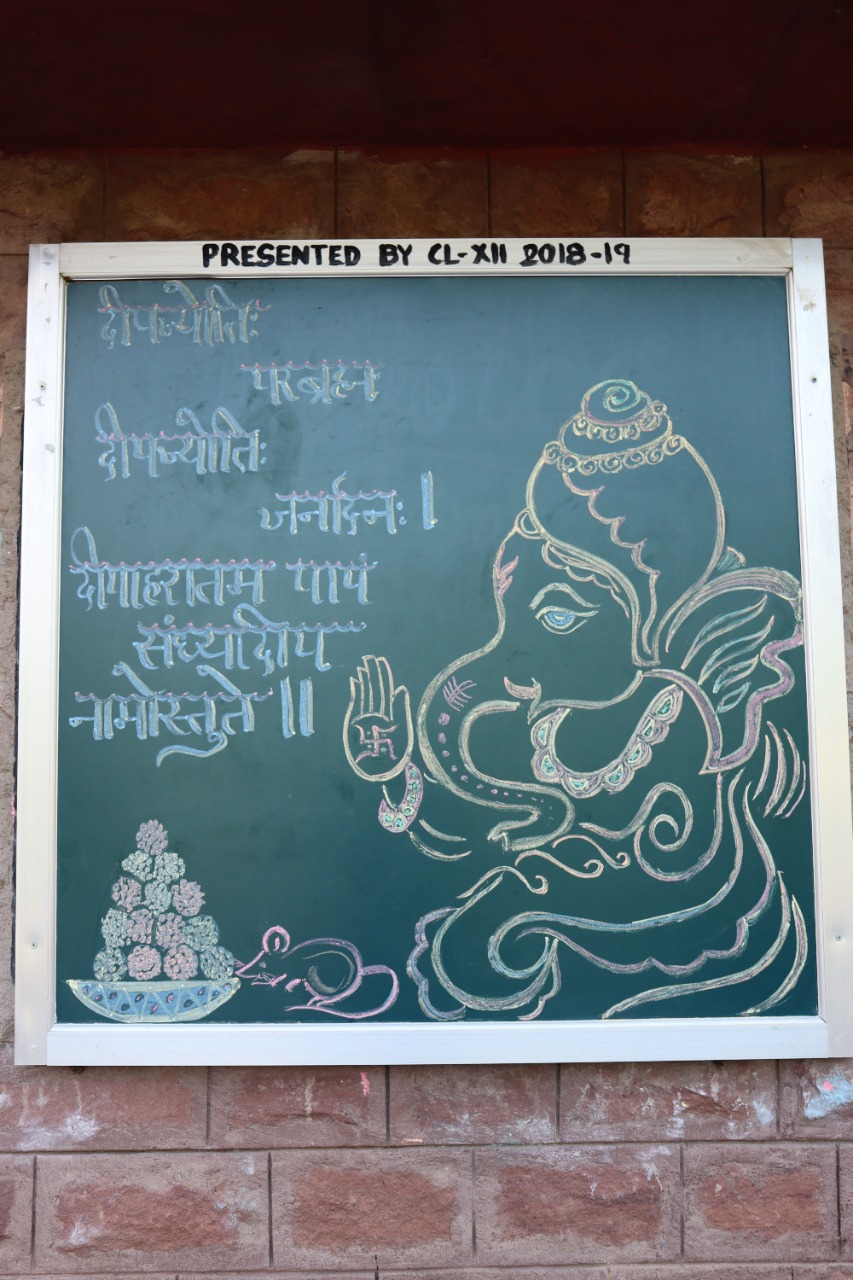 PRESENTED BY CL-XII 2018-19
दीपज्योतिः
परब्रह्म
दीपज्योतिः
जर्नादनः ।
दीपोहरातम पापं
संध्यादीप
नामोस्तुते ॥